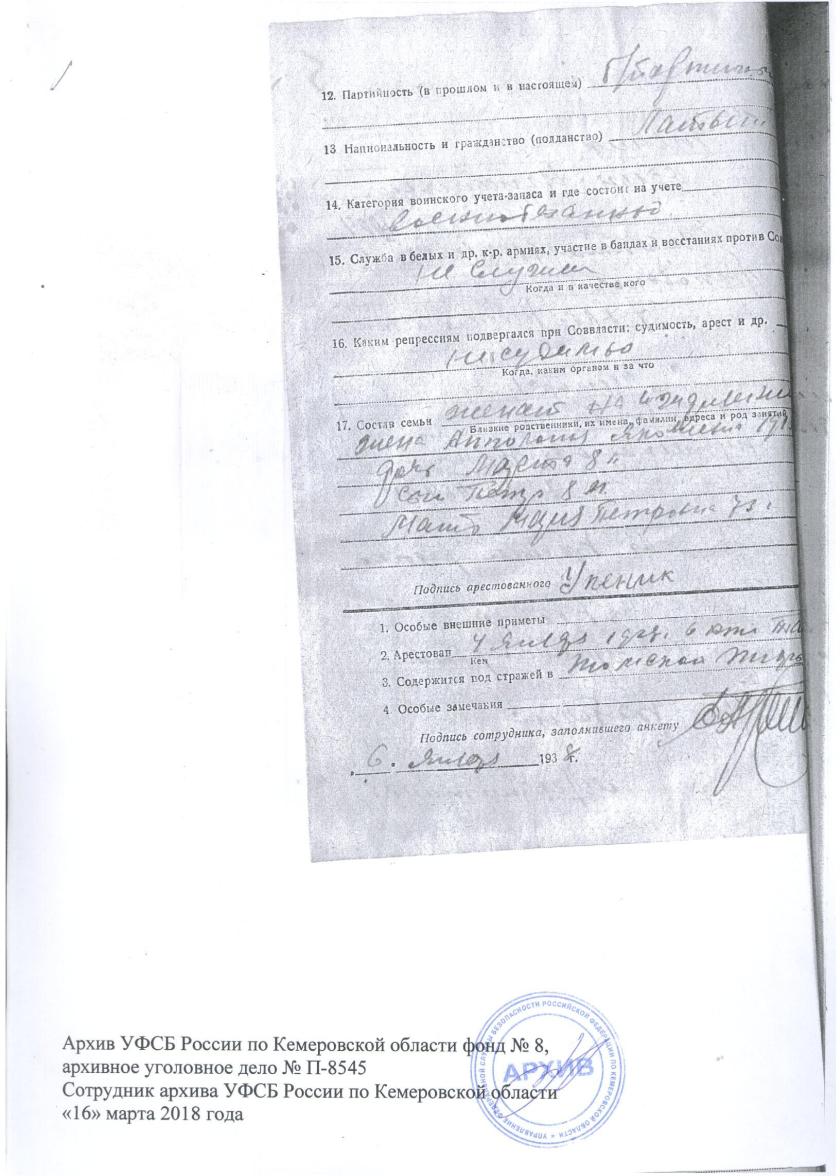 12. Партийность (в прошлом и в настоящем) б/партийн
13 Национальность и гражданство (подданство) Латыш
14. Категория воинского учета-запаса и где состоит на учете
военнообязанный
15. Служба в белых и др. к-р. армиях, участие в бандах и восстаниях против Сов
не служил
Когда и в качестве кого
16. Каким репрессиям подвергался при Соввласти: судимость, арест и др.
Когда, каким органом и за что
17. Состав семьи женат на
Близкие родственники, их имена, фамилии, адреса и род занятий
жена
дочь 8 л
сын Петр 8 м
Мать Мария Петровна 73 г
Подпись арестованного Упеник
1. Особые внешние приметы
2. Арестован 4 Января
Кем
3. Содержится под стражей в томской тюрь
4. Особые замечания
Подпись сотрудника, заполнившего анкету
„ 6 " Января 1938 г.
Архив УФСБ России по Кемеровской области фонд № 8,
архивное уголовное дело № П-8545
Сотрудник архива УФСБ России по Кемеровской области
«16» марта 2018 года
АРХИВ